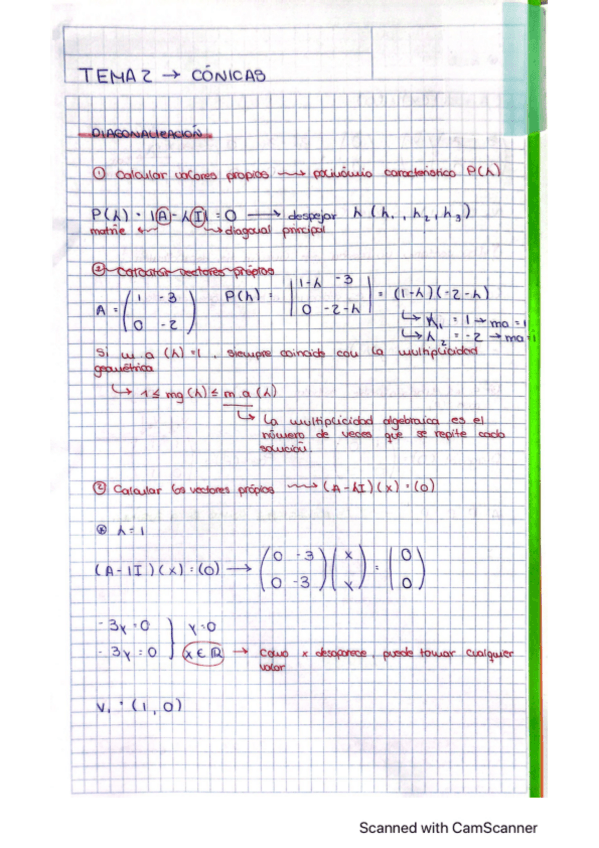 TEMA 2 → CÓNICAS
DIAGONALIZACIÓN
① Calcular valores propios ⟿ polinómio característico P(λ)
P(λ) = |A - λI| = 0 → despejar λ (λ₁, λ₂, λ₃)
matriz ← ↳ diagonal principal
② Calcular vectores própios
A = (1 -3 / 0 -2) P(λ) = |1-λ -3 / 0 -2-λ| = (1-λ)(-2-λ)
↳ λ₁ = 1 → ma = 1
↳ λ₂ = -2 → ma = 1
Si m.a (λ) = 1, siempre coincide con la multiplicidad
geométrica
↳ 1 ≤ mg(λ) ≤ m.a(λ)
↳ La multiplicidad algebraica es el
número de veces que se repite cada
solución.
② Calcular los vectores própios ⟿ (A-λI)(x) = (0)
⊛ λ = 1
(A-1I)(x) = (0) → (0 -3 / 0 -3) (x / y) = (0 / 0)
-3y = 0 } y = 0
-3y = 0 } x ∈ ℝ → Como x desaparece, puede tomar cualquier
valor
V₁ = (1, 0)
Scanned with CamScanner